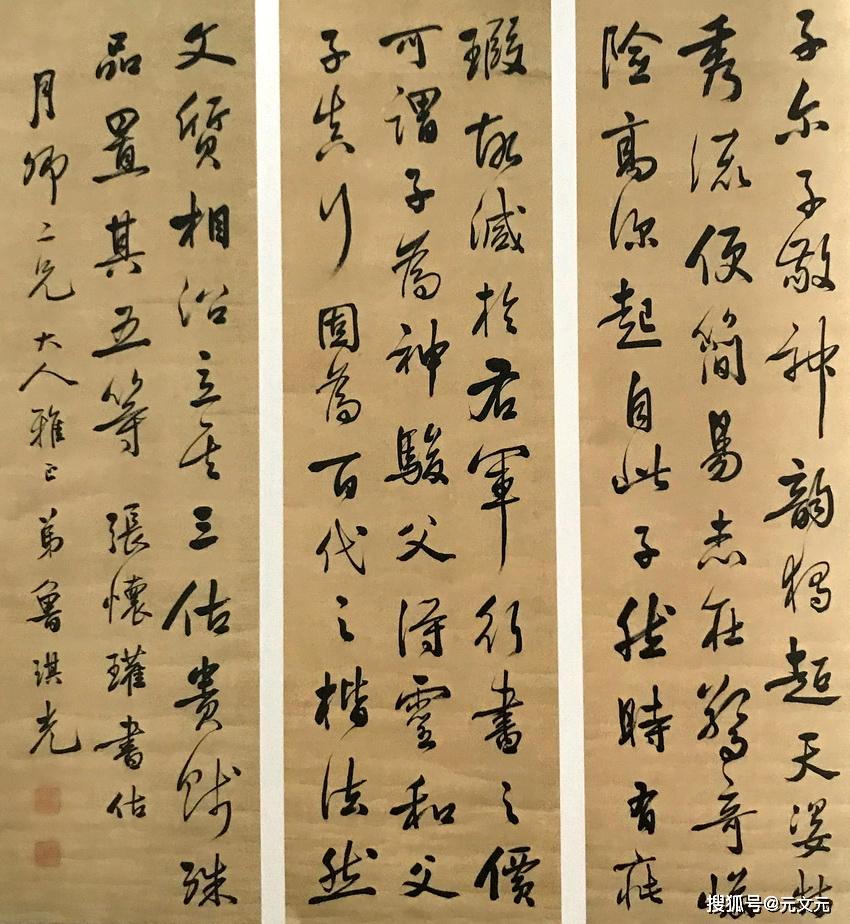 子尔子敬神韵獨超天姿特
秀流便簡易志在驚奇峻
險高深起自此子然時有疵
瑕故減於右軍行書之價
可謂子為神駿父得靈和父
子真行固為百代之楷法然
文質相沿立其三估貴賤殊
品置其五等 張懷瓘書估
月師二兄大人雅正弟魯琪光
搜狐号@元文元